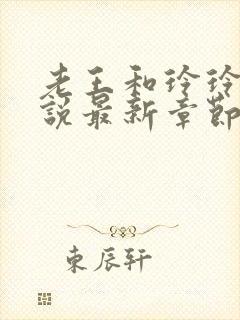 老王和玲玲
說最新章節
東辰轩